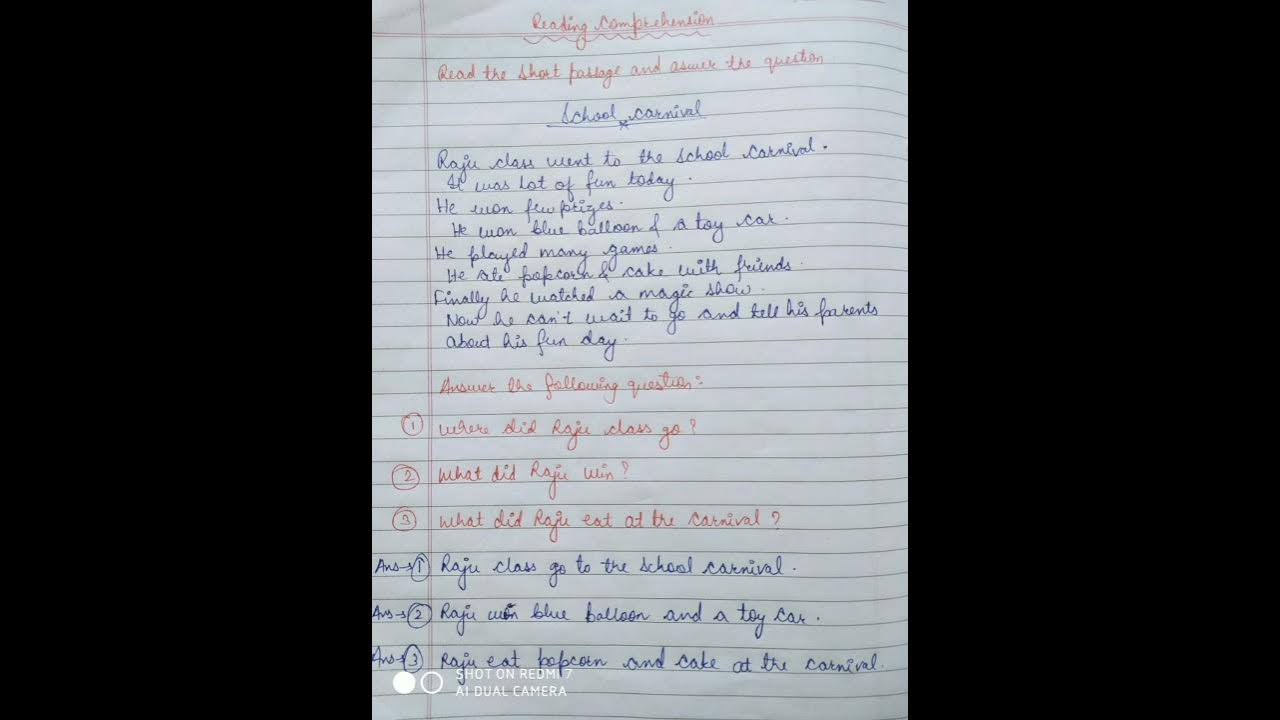 Reading Comprehension
Read the short passage and aswer the question
School carnival
Raju class went to the school carnival.
It was lot of fun today.
He won few prizes.
He won blue balloon & a toy car.
He played many games.
He ate popcorn & cake with friends.
Finally he watched a magic show.
Now he can't wait to go and tell his parents
about his fun day.
Answer the following question:
① Where did Raju class go?
② What did Raju win?
③ What did Raju eat at the carnival?
Ans→① Raju class go to the school carnival.
Ans→② Raju won blue balloon and a toy car.
Ans→③ Raju eat popcorn and cake at the carnival.
SHOT ON REDMI 7
AI DUAL CAMERA